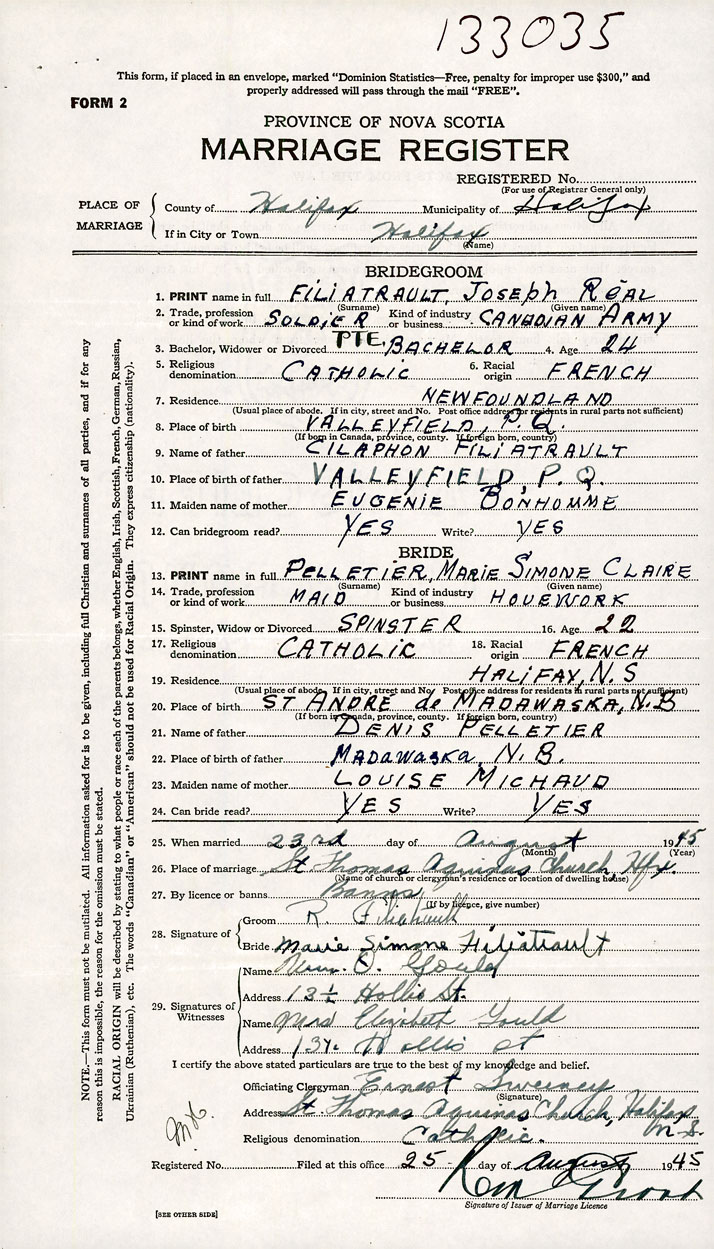 133035
This form, if placed in an envelope, marked "Dominion Statistics—Free, penalty for improper use $300," and
properly addressed will pass through the mail "FREE".
FORM 2
PROVINCE OF NOVA SCOTIA
MARRIAGE REGISTER
REGISTERED No.
(For use of Registrar General only)
PLACE OF MARRIAGE
County of Halifax Municipality of Halifax
If in City or Town Halifax
(Name)
BRIDEGROOM
1. PRINT name in full FILIATRAULT, JOSEPH RÉAL
(Surname) (Given name)
2. Trade, profession or kind of work SOLDIER Kind of industry or business CANADIAN ARMY
PTE.
3. Bachelor, Widower or Divorced BACHELOR 4. Age 24
5. Religious denomination CATHOLIC 6. Racial origin FRENCH
7. Residence NEWFOUNDLAND
(Usual place of abode. If in city, street and No. Post office address for residents in rural parts not sufficient)
8. Place of birth VALLEYFIELD, P.Q.
(If born in Canada, province, county. If foreign born, country)
9. Name of father CILAPHON FILIATRAULT
10. Place of birth of father VALLEYFIELD, P.Q.
11. Maiden name of mother EUGENIE BONHOMME
12. Can bridegroom read? YES Write? YES
BRIDE
13. PRINT name in full PELLETIER, MARIE SIMONE CLAIRE
(Surname) (Given name)
14. Trade, profession or kind of work MAID Kind of industry or business HOUEWORK
15. Spinster, Widow or Divorced SPINSTER 16. Age 22
17. Religious denomination CATHOLIC 18. Racial origin FRENCH
19. Residence HALIFAX, N.S
(Usual place of abode. If in city, street and No. Post office address for residents in rural parts not sufficient)
20. Place of birth ST ANDRÉ de MADAWASKA, N.B
(If born in Canada, province, county. If foreign born, country)
21. Name of father DENIS PELLETIER
22. Place of birth of father MADAWASKA, N.B.
23. Maiden name of mother LOUISE MICHAUD
24. Can bride read? YES Write? YES
25. When married 23rd day of August 1945
(Month) (Year)
26. Place of marriage St Thomas Aquinas Church, Hfx.
(Name of church or clergyman's residence or location of dwelling house)
27. By licence or banns Banns
(If by licence, give number)
28. Signature of
Groom R. Filiatrault
Bride Marie Simone Filiatrault
29. Signatures of Witnesses
Name Wm. O. Gould
Address 13½ Hollis St.
Name Mrs Elizabet Gould
Address 13½ Hollis St
I certify the above stated particulars are true to the best of my knowledge and belief.
Officiating Clergyman Ernest Sweeney
(Signature)
Address St Thomas Aquinas Church, Halifax
N.S.
Religious denomination Catholic.
Registered No. Filed at this office 25 day of August 1945
Signature of Issuer of Marriage Licence
[SEE OTHER SIDE]
NOTE.—This form must not be mutilated. All information asked for is to be given, including full Christian and surnames of all parties, and if for any
reason this is impossible, the reason for the omission must be stated.
RACIAL ORIGIN will be described by stating to what people or race each of the parents belongs, whether English, Irish, Scottish, French, German, Russian,
Ukrainian (Ruthenian), etc. The words "Canadian" or "American" should not be used for Racial Origin. They express citizenship (nationality).